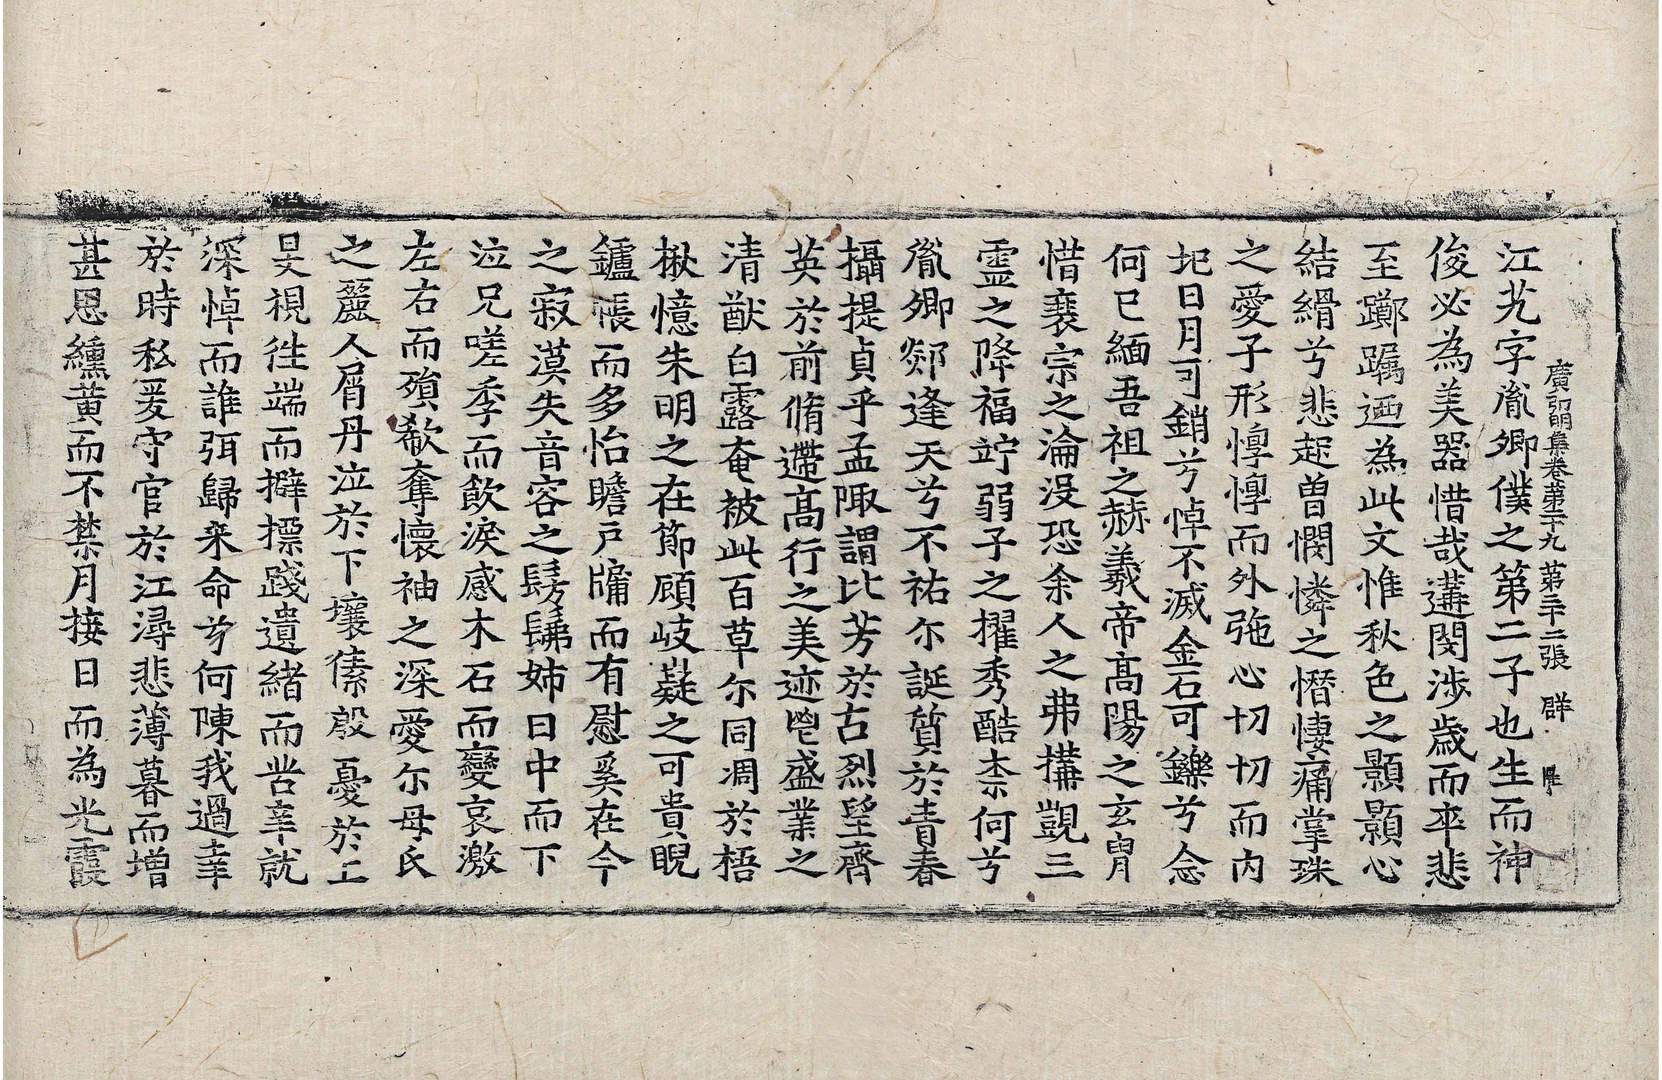 廣弘明集卷第二十九 第三十二張 群
江艽字胤卿僕之第二子也生而神
俊必為美器惜哉遘閔涉歲而卒悲
至躑躅迺為此文惟秋色之顥顥心
結縎兮悲起曾憫憐之慘悽痛掌珠
之愛子形惸惸而外弛心切切而內
圯日月可銷兮悼不滅金石可鑠兮念
何已緬吾祖之赫羲帝高陽之玄胄
惜衰宗之淪沒恐余人之弗搆覬三
靈之降福竚弱子之擢秀酷柰何兮
胤卿郯逢天兮不祐尒誕質於青春
攝提貞乎孟陬謂比芳於古烈望齊
英於前脩遰高行之美迹弘盛業之
清猷白露奄被此百草尒同凋於梧
楸憶朱明之在節顧岐嶷之可貴睨
鑪帳而多怡瞻戶牖而有慰奚在今
之寂漠失音容之髣髴姊目中而下
泣兄嗟季而飲淚感木石而變哀激
左右而殞欷奪懷袖之深愛尒母氏
之麗人屑丹泣於下壤傃慇憂於上
旻視往端而擗摽踐遺緒而苦辛就
深悼而誰弭歸來命兮何陳我過幸
於時私爰守官於江潯悲薄暮而增
甚思纁黃而不禁月接日而為光霞